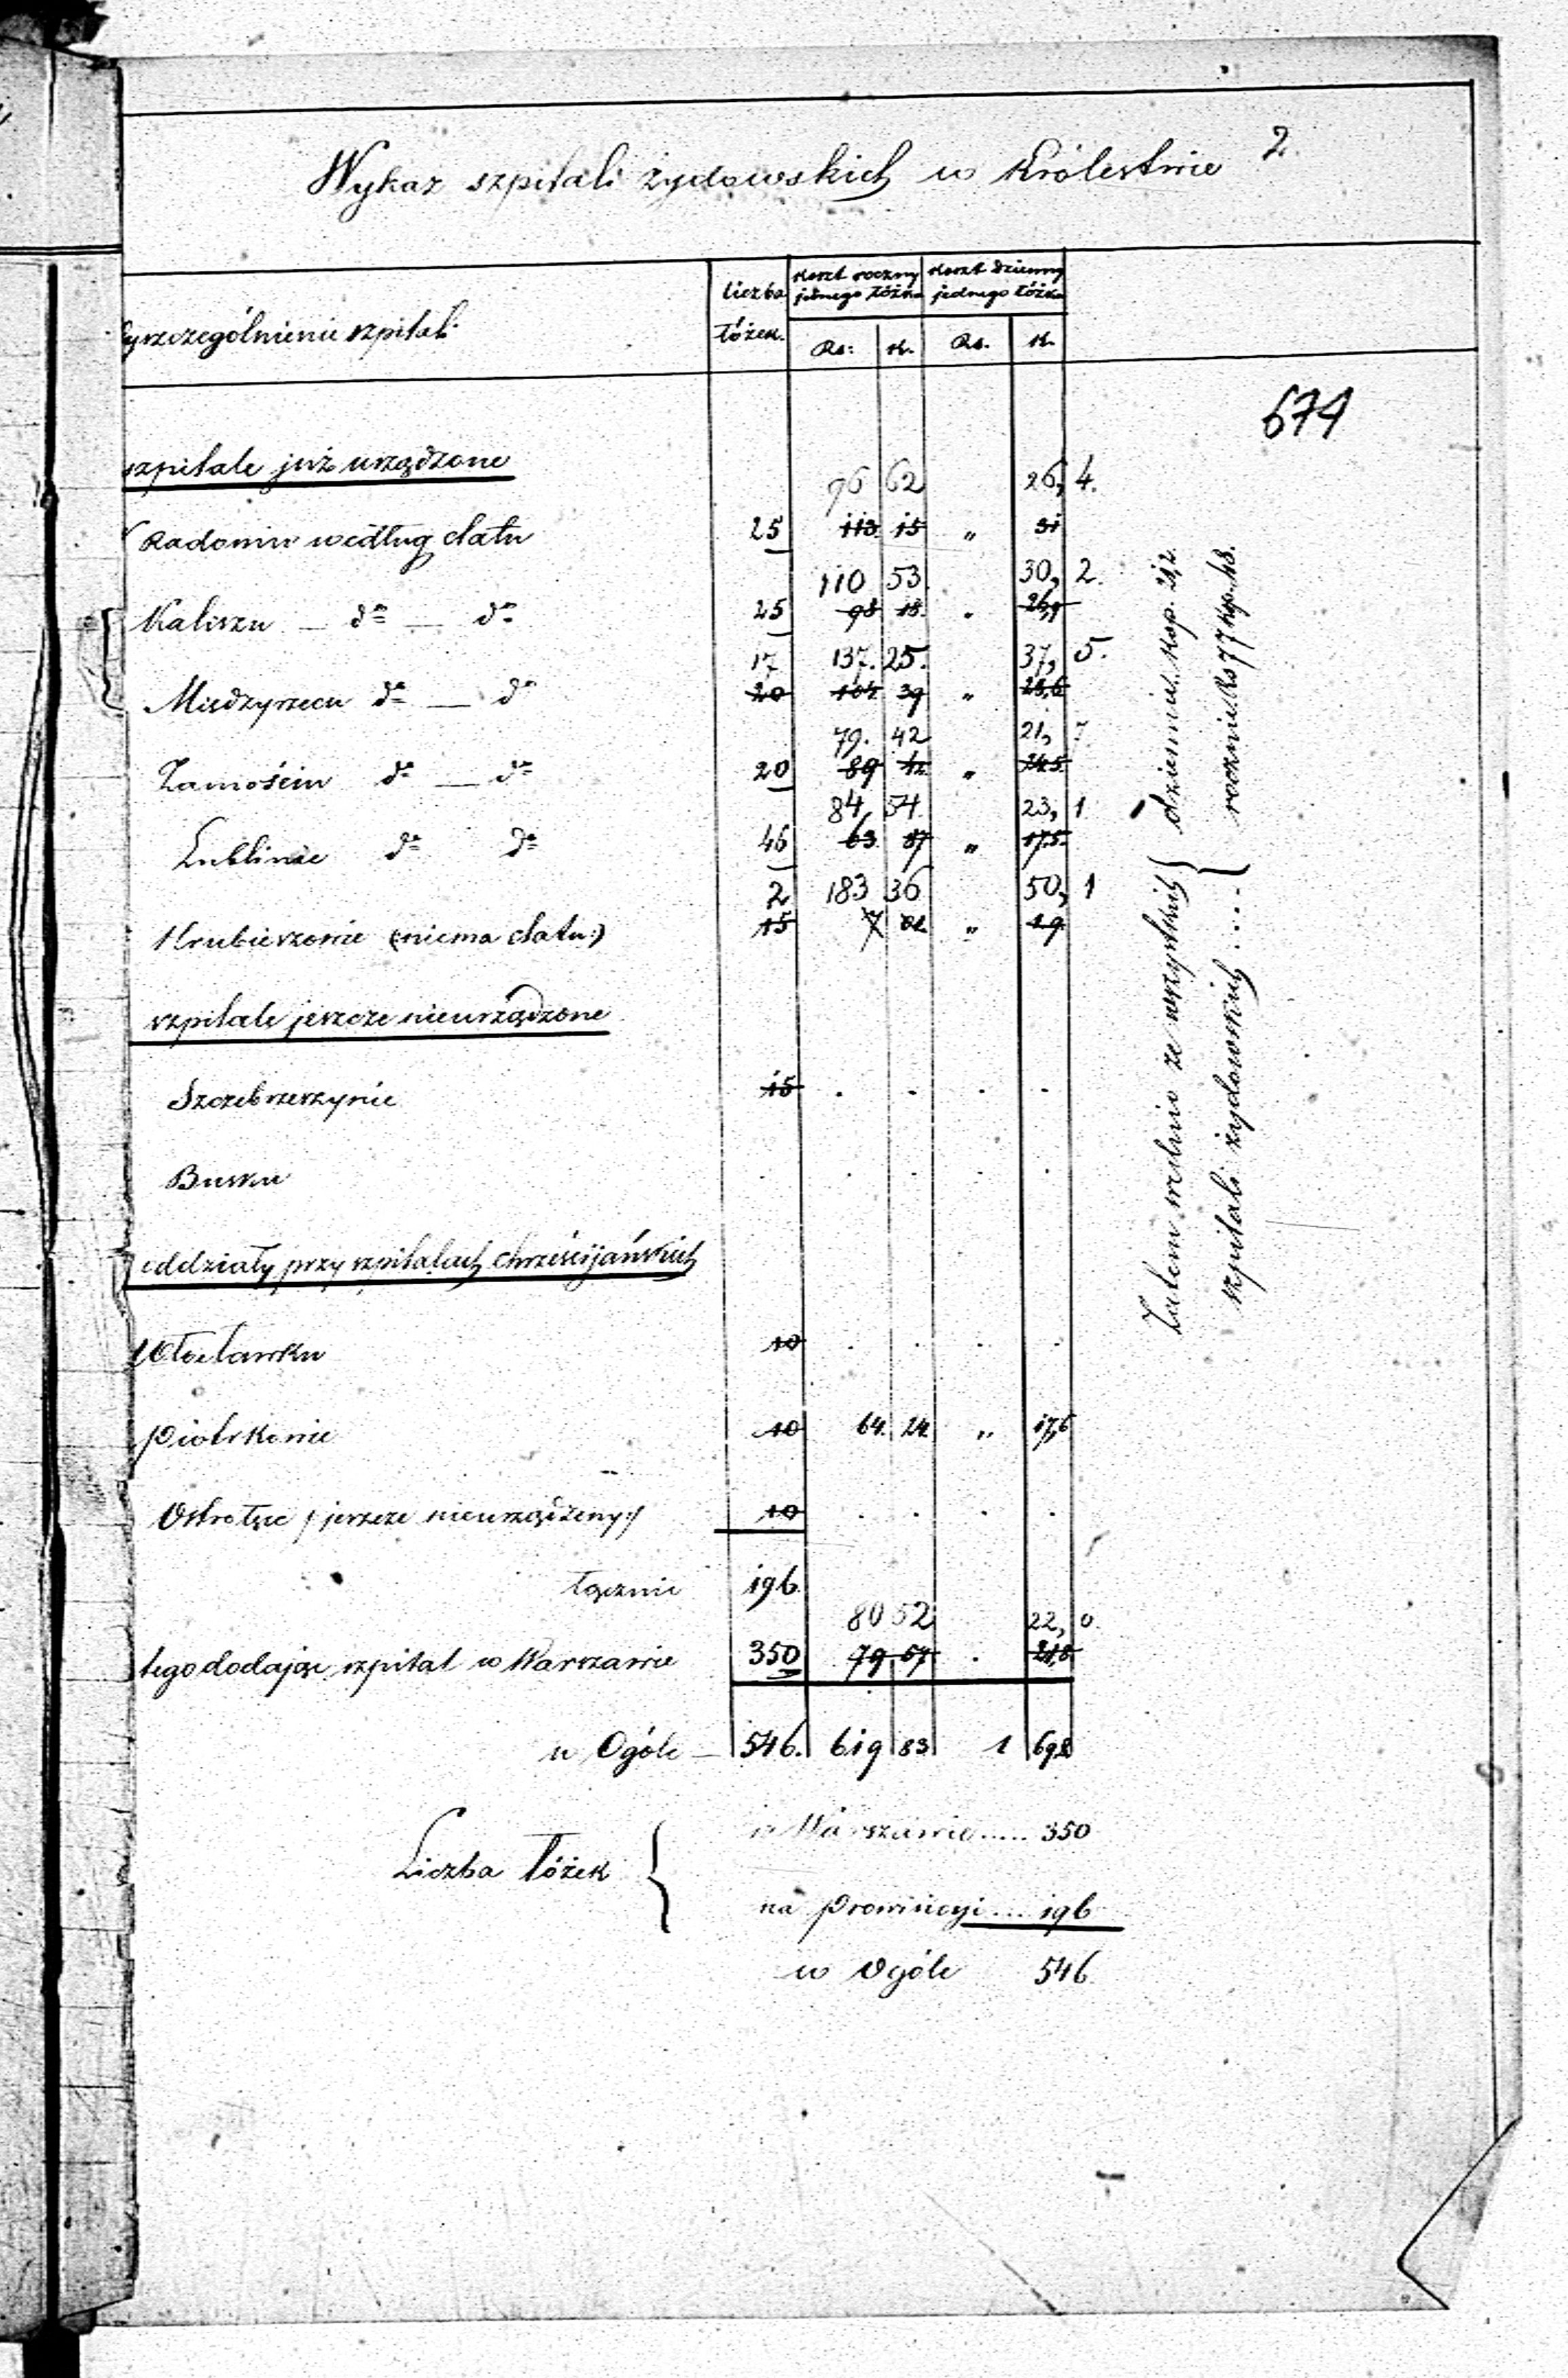 2.
Wykaz szpitali żydowskich w Królestwie
yszczególnienie szpitali
liczba łóżek.
Koszt roczny jednego łóżka
Koszt dzienny jednego łóżka
Rs: K. Rs. K.
674
szpitale już urządzone
96 62 26, 4.
Radomiu według etatu 25 113. 15 „ 31
110 53 30, 2.
Kaliszu — do — do 25 98 18. „
17 137. 25. 37, 5.
Miedzyrzecu do — do 20 104 39 „ 28,6
79. 42 21,
Zamościu do — do 20 89 „ 24,5
84, 54 23, 1
Lublinie do do 46 63. 87 „ 17,5.
2 183 36 50, 1
Hrubieszowie (niema etatu:) 15 „ 19
szpitale jeszcze nieurządzone
Szczebrzeszynie 15 . . . .
Busku . . . .
oddziały przy szpitalach chrześcijańskich
Włocławku 10 . . . .
Piotrkowie 10 64. 24 „ 17,6
Ostrołęce /jeszcze nieurządzony:/ 10 . . . .
łącznie 196.
80 52 22, 0.
tego dodając szpital w Warszawie 350 79, 57 . 21,8
w Ogóle — 546. 619 83 1 698
Liczba łóżek {
w Warszawie ..... 350
na prowincyi .... 196
w Ogóle 546.
Zatem średnio ze wszystkich } dziennie Kop. 21,2.
szpitali żydowskich .... } rocznie Rs 77 Kop. 48.